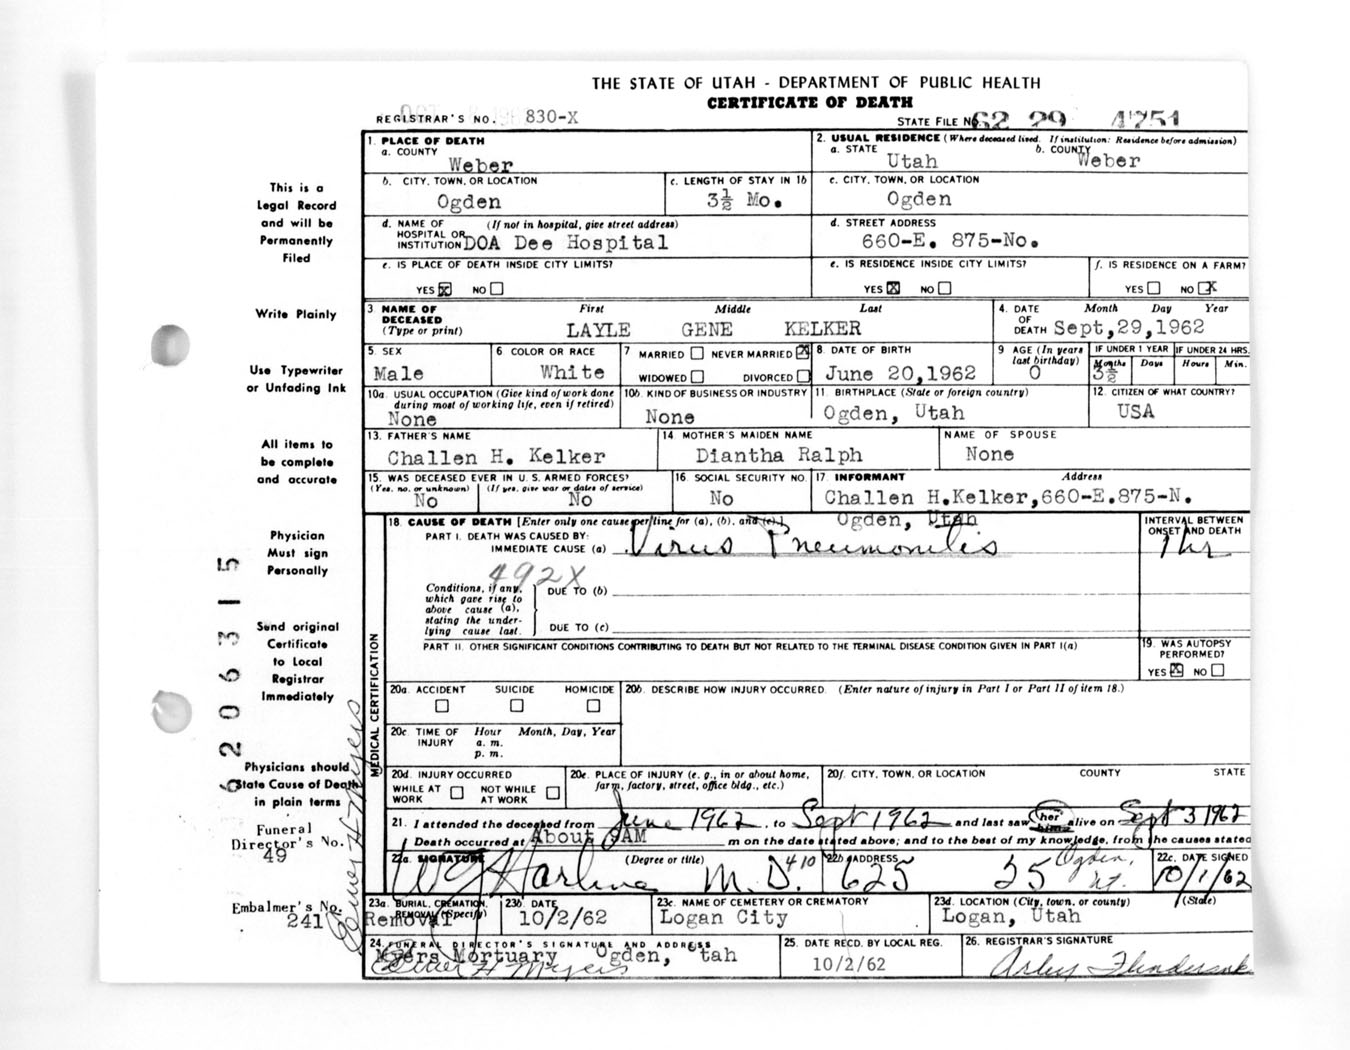 THE STATE OF UTAH - DEPARTMENT OF PUBLIC HEALTH
CERTIFICATE OF DEATH
REGISTRAR'S NO. 830-X
STATE FILE NO. 62 29 4751
This is a Legal Record and will be Permanently Filed
Write Plainly
Use Typewriter or Unfading Ink
All items to be complete and accurate
Physician Must sign Personally
Send original Certificate to Local Registrar Immediately
Physicians should State Cause of Death in plain terms
Funeral Director's No. 49
Embalmer's No. 241
Elmer H Myers
6206315
1. PLACE OF DEATH
a. COUNTY Weber
2. USUAL RESIDENCE (Where deceased lived. If institution: Residence before admission)
a. STATE Utah b. COUNTY Weber
b. CITY, TOWN, OR LOCATION Ogden
c. LENGTH OF STAY IN 1b 3½ Mo.
c. CITY, TOWN, OR LOCATION Ogden
d. NAME OF HOSPITAL OR INSTITUTION (If not in hospital, give street address) DOA Dee Hospital
d. STREET ADDRESS 660-E. 875-No.
e. IS PLACE OF DEATH INSIDE CITY LIMITS? YES X NO
e. IS RESIDENCE INSIDE CITY LIMITS? YES X NO
f. IS RESIDENCE ON A FARM? YES NO X
3. NAME OF DECEASED (Type or print) First Middle Last
LAYLE GENE KELKER
4. DATE OF DEATH Month Day Year
Sept,29,1962
5. SEX Male
6 COLOR OR RACE White
7 MARRIED NEVER MARRIED X WIDOWED DIVORCED
8. DATE OF BIRTH June 20,1962
9 AGE (In years last birthday) 0
IF UNDER 1 YEAR Months Days 3½
IF UNDER 24 HRS. Hours Min.
10a. USUAL OCCUPATION (Give kind of work done during most of working life, even if retired) None
10b. KIND OF BUSINESS OR INDUSTRY None
11. BIRTHPLACE (State or foreign country) Ogden, Utah
12. CITIZEN OF WHAT COUNTRY? USA
13. FATHER'S NAME Challen H. Kelker
14 MOTHER'S MAIDEN NAME Diantha Ralph
NAME OF SPOUSE None
15. WAS DECEASED EVER IN U. S. ARMED FORCES? (Yes, no, or unknown) No (If yes, give war or dates of service) No
16. SOCIAL SECURITY NO. No
17. INFORMANT Address
Challen H.Kelker,660-E.875-N.
Ogden, Utah
18. CAUSE OF DEATH [Enter only one cause per line for (a), (b), and (c).]
INTERVAL BETWEEN ONSET AND DEATH
PART I. DEATH WAS CAUSED BY:
IMMEDIATE CAUSE (a) Virus Pneumonitis 1 hr
492X
Conditions, if any, which gave rise to above cause (a), stating the underlying cause last.
DUE TO (b)
DUE TO (c)
PART II. OTHER SIGNIFICANT CONDITIONS CONTRIBUTING TO DEATH BUT NOT RELATED TO THE TERMINAL DISEASE CONDITION GIVEN IN PART I(a)
19. WAS AUTOPSY PERFORMED? YES X NO
MEDICAL CERTIFICATION
20a. ACCIDENT SUICIDE HOMICIDE
20b. DESCRIBE HOW INJURY OCCURRED. (Enter nature of injury in Part I or Part II of item 18.)
20c. TIME OF INJURY Hour a. m. p. m. Month, Day, Year
20d. INJURY OCCURRED WHILE AT WORK NOT WHILE AT WORK
20e. PLACE OF INJURY (e. g., in or about home, farm, factory, street, office bldg., etc.)
20f. CITY, TOWN, OR LOCATION COUNTY STATE
21. I attended the deceased from June 1962, to Sept 1962 and last saw her him alive on Sept 3 1962
Death occurred at About 9AM m on the date stated above; and to the best of my knowledge, from the causes stated
22a. SIGNATURE (Degree or title) M.D. 410
22b ADDRESS 625 25 Ogden, Ut.
22c. DATE SIGNED 10/1/62
23a. BURIAL, CREMATION, REMOVAL (Specify) Removal
23b. DATE 10/2/62
23c. NAME OF CEMETERY OR CREMATORY Logan City
23d. LOCATION (City, town, or county) (State) Logan, Utah
24. FUNERAL DIRECTOR'S SIGNATURE AND ADDRESS
Myers Mortuary Ogden, Utah
Elmer H Myers
25. DATE RECD. BY LOCAL REG. 10/2/62
26. REGISTRAR'S SIGNATURE